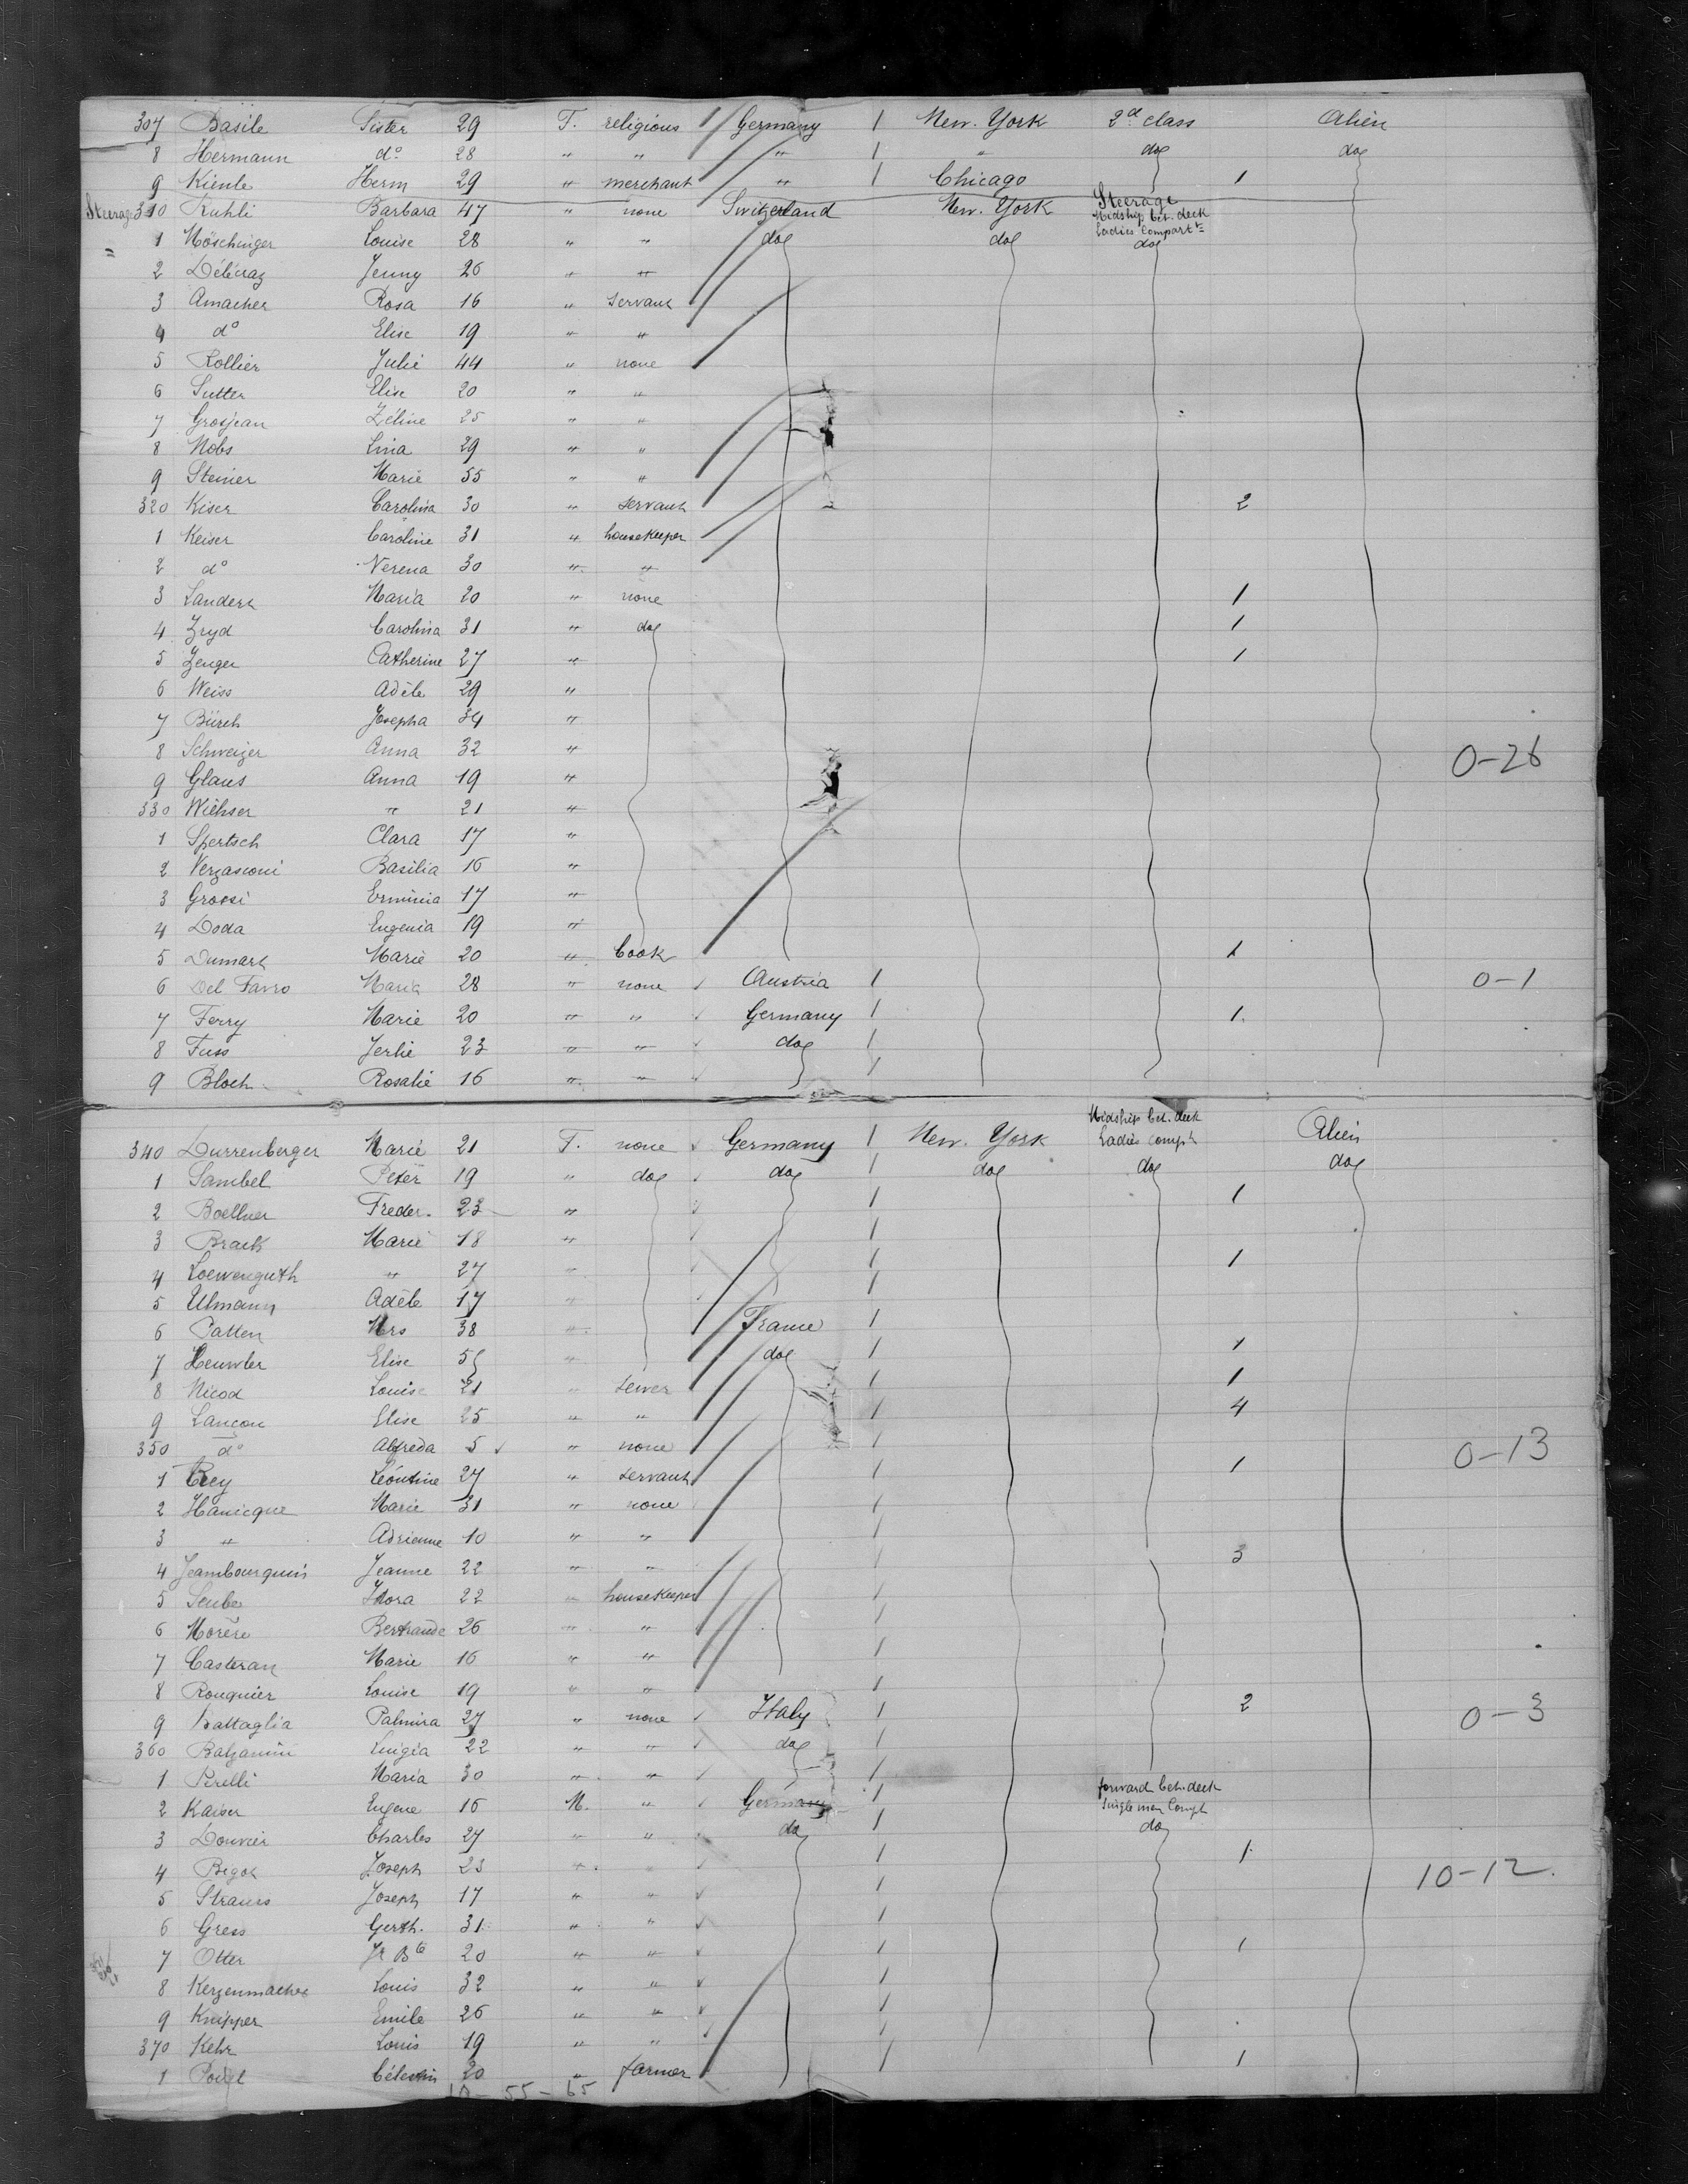 307 Basile Sister 29 F. religious Germany 1 New. York 2d class Alien
8 Hermann do 28 " " " 1 " do do
9 Kienle Herm 29 " merchant " 1 Chicago 1
Steerage 310 Kuhli Barbara 47 " none Switzerland New. York Steerage Midship bet. deck Ladies Compartt
1 Möschinger Louise 28 " " do do do
2 Délécraz Jenny 26 " "
3 Amacher Rosa 16 " servant
4 do Elise 19 " "
5 Rollier Julie 44 " none
6 Sutter Elise 20 " "
7 Grosjean Zéline 25 " "
8 Nobs Lina 29 " "
9 Steiner Marie 55 " "
320 Kiser Carolina 30 " servant 2
1 Keiser Caroline 31 " housekeeper
2 do Verena 30 " "
3 Landert Maria 20 " none 1
4 Zryd Carolina 31 " do 1
5 Zenger Catherine 27 " 1
6 Weiss Adèle 29 "
7 Bürch Josepha 34 "
8 Schweizer Anna 32 " 0-26
9 Glaus Anna 19 "
330 Wichser " 21 "
1 Spertsch Clara 17 "
2 Verzasconi Basilia 16 "
3 Grossi Erminia 17 "
4 Doda Eugenia 19 "
5 Dumart Marie 20 " Cook 1
6 Del Favro Maria 28 " none Austria 1 0-1
7 Ferry Marie 20 " " Germany 1 1
8 Fuss Jerlie 23 " " do 1
9 Bloch Rosalie 16 " " 1
Midship bet. deck
340 Durrenberger Marie 21 F. none Germany 1 New. York Ladies compt Alien
1 Sambel Peter 19 " do do 1 do do do
2 Boellner Freder. 23 " 1 1
3 Brack Marie 18 " 1
4 Loewenguth " 27 " 1 1
5 Ulmann Adèle 17 " 1
6 Patten Mrs 38 " France 1
7 Heuwler Elise 5 " do 1 1
8 Nicod Louise 21 " sewer 1 1
9 Lançon Elise 25 " " 1 4
350 do Alfreda 5 " none 1 0-13
1 Rey Léontine 27 " servant 1 1
2 Hanicque Marie 31 " none 1
3 " Adrienne 10 " " 1
4 Jeambourquin Jeanne 22 " " 1 3
5 Seube 22 " housekeeper 1
6 Morère Bertrande 26 " " 1
7 Casteran Marie 16 " " 1
8 Rouquier Louise 19 " " 1
9 Battaglia Palmira 27 " none Italy 1 2 0-3
360 Balzamini Luigia 22 " " do 1
1 Perelli Maria 30 " " 1
2 Kaiser Eugene 16 M. " Germany 1 forward bet. deck Single men Compt
3 Douvier Charles 27 " " do 1 do
4 Bigot Joseph 23 " " 1 1 10-12.
5 Strauss Joseph 17 " " 1
6 Gress Gerth. 31 " " 1
7 Otter Jn Bte 20 " " 1 1
8 Kerzenmacher Louis 32 " " 1
9 Knipper Emile 26 " " 1
370 Kehr Louis 19 " " 1
1 Célestin 20 " farmer 1 1
10 - 55 - 65